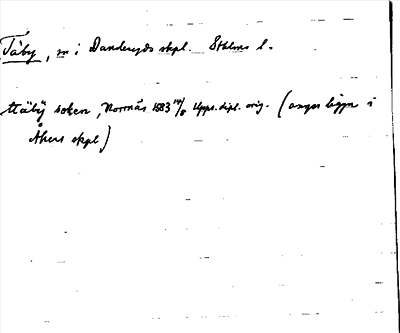 Täby, sn i Danderyds skpl. Sthlms l.
ttäbÿ soken, Norrnäs 1583 14/8 Upps. dipl. orig. (anges ligga i
Åkers skpl)